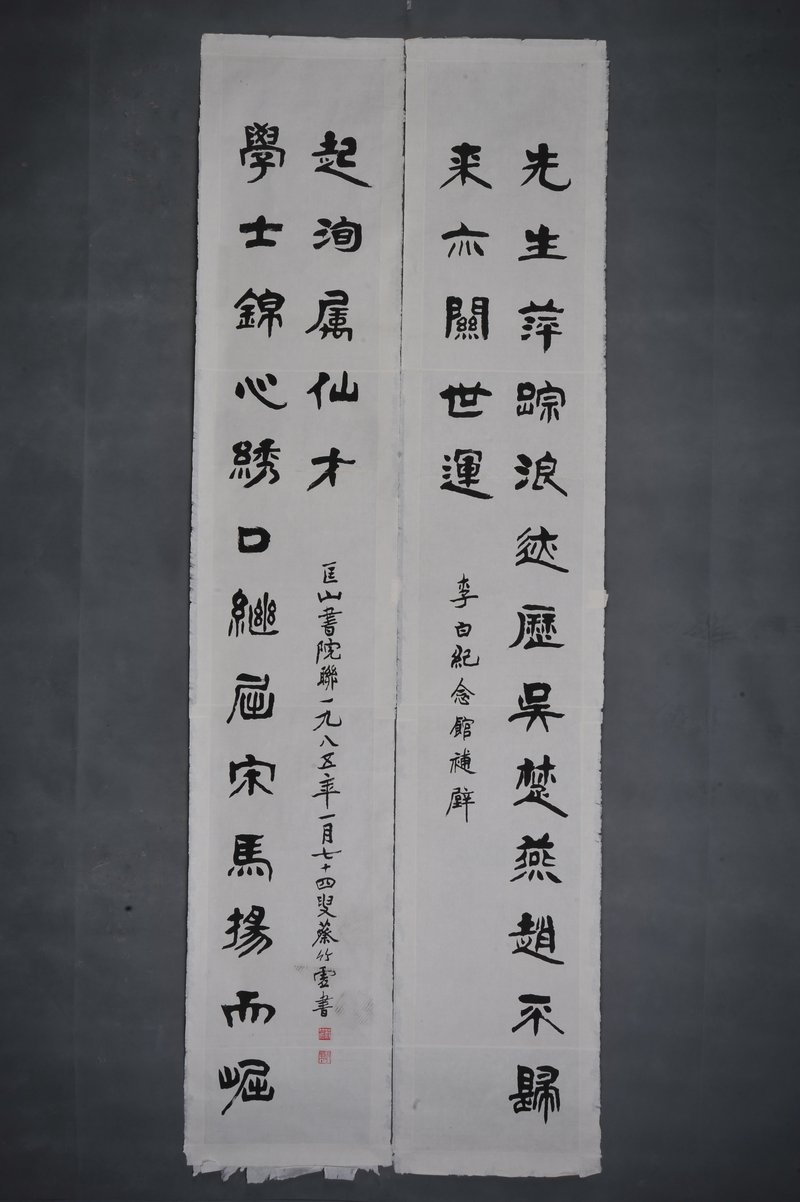 先生萍踪浪迹歷吳楚燕趙不歸
来亦關世運
李白紀念館補壁
學士錦心綉口繼屈宋馬揚而崛
起洵属仙才
匡山書院聯一九八五年一月七十四叟蔡竹虛書